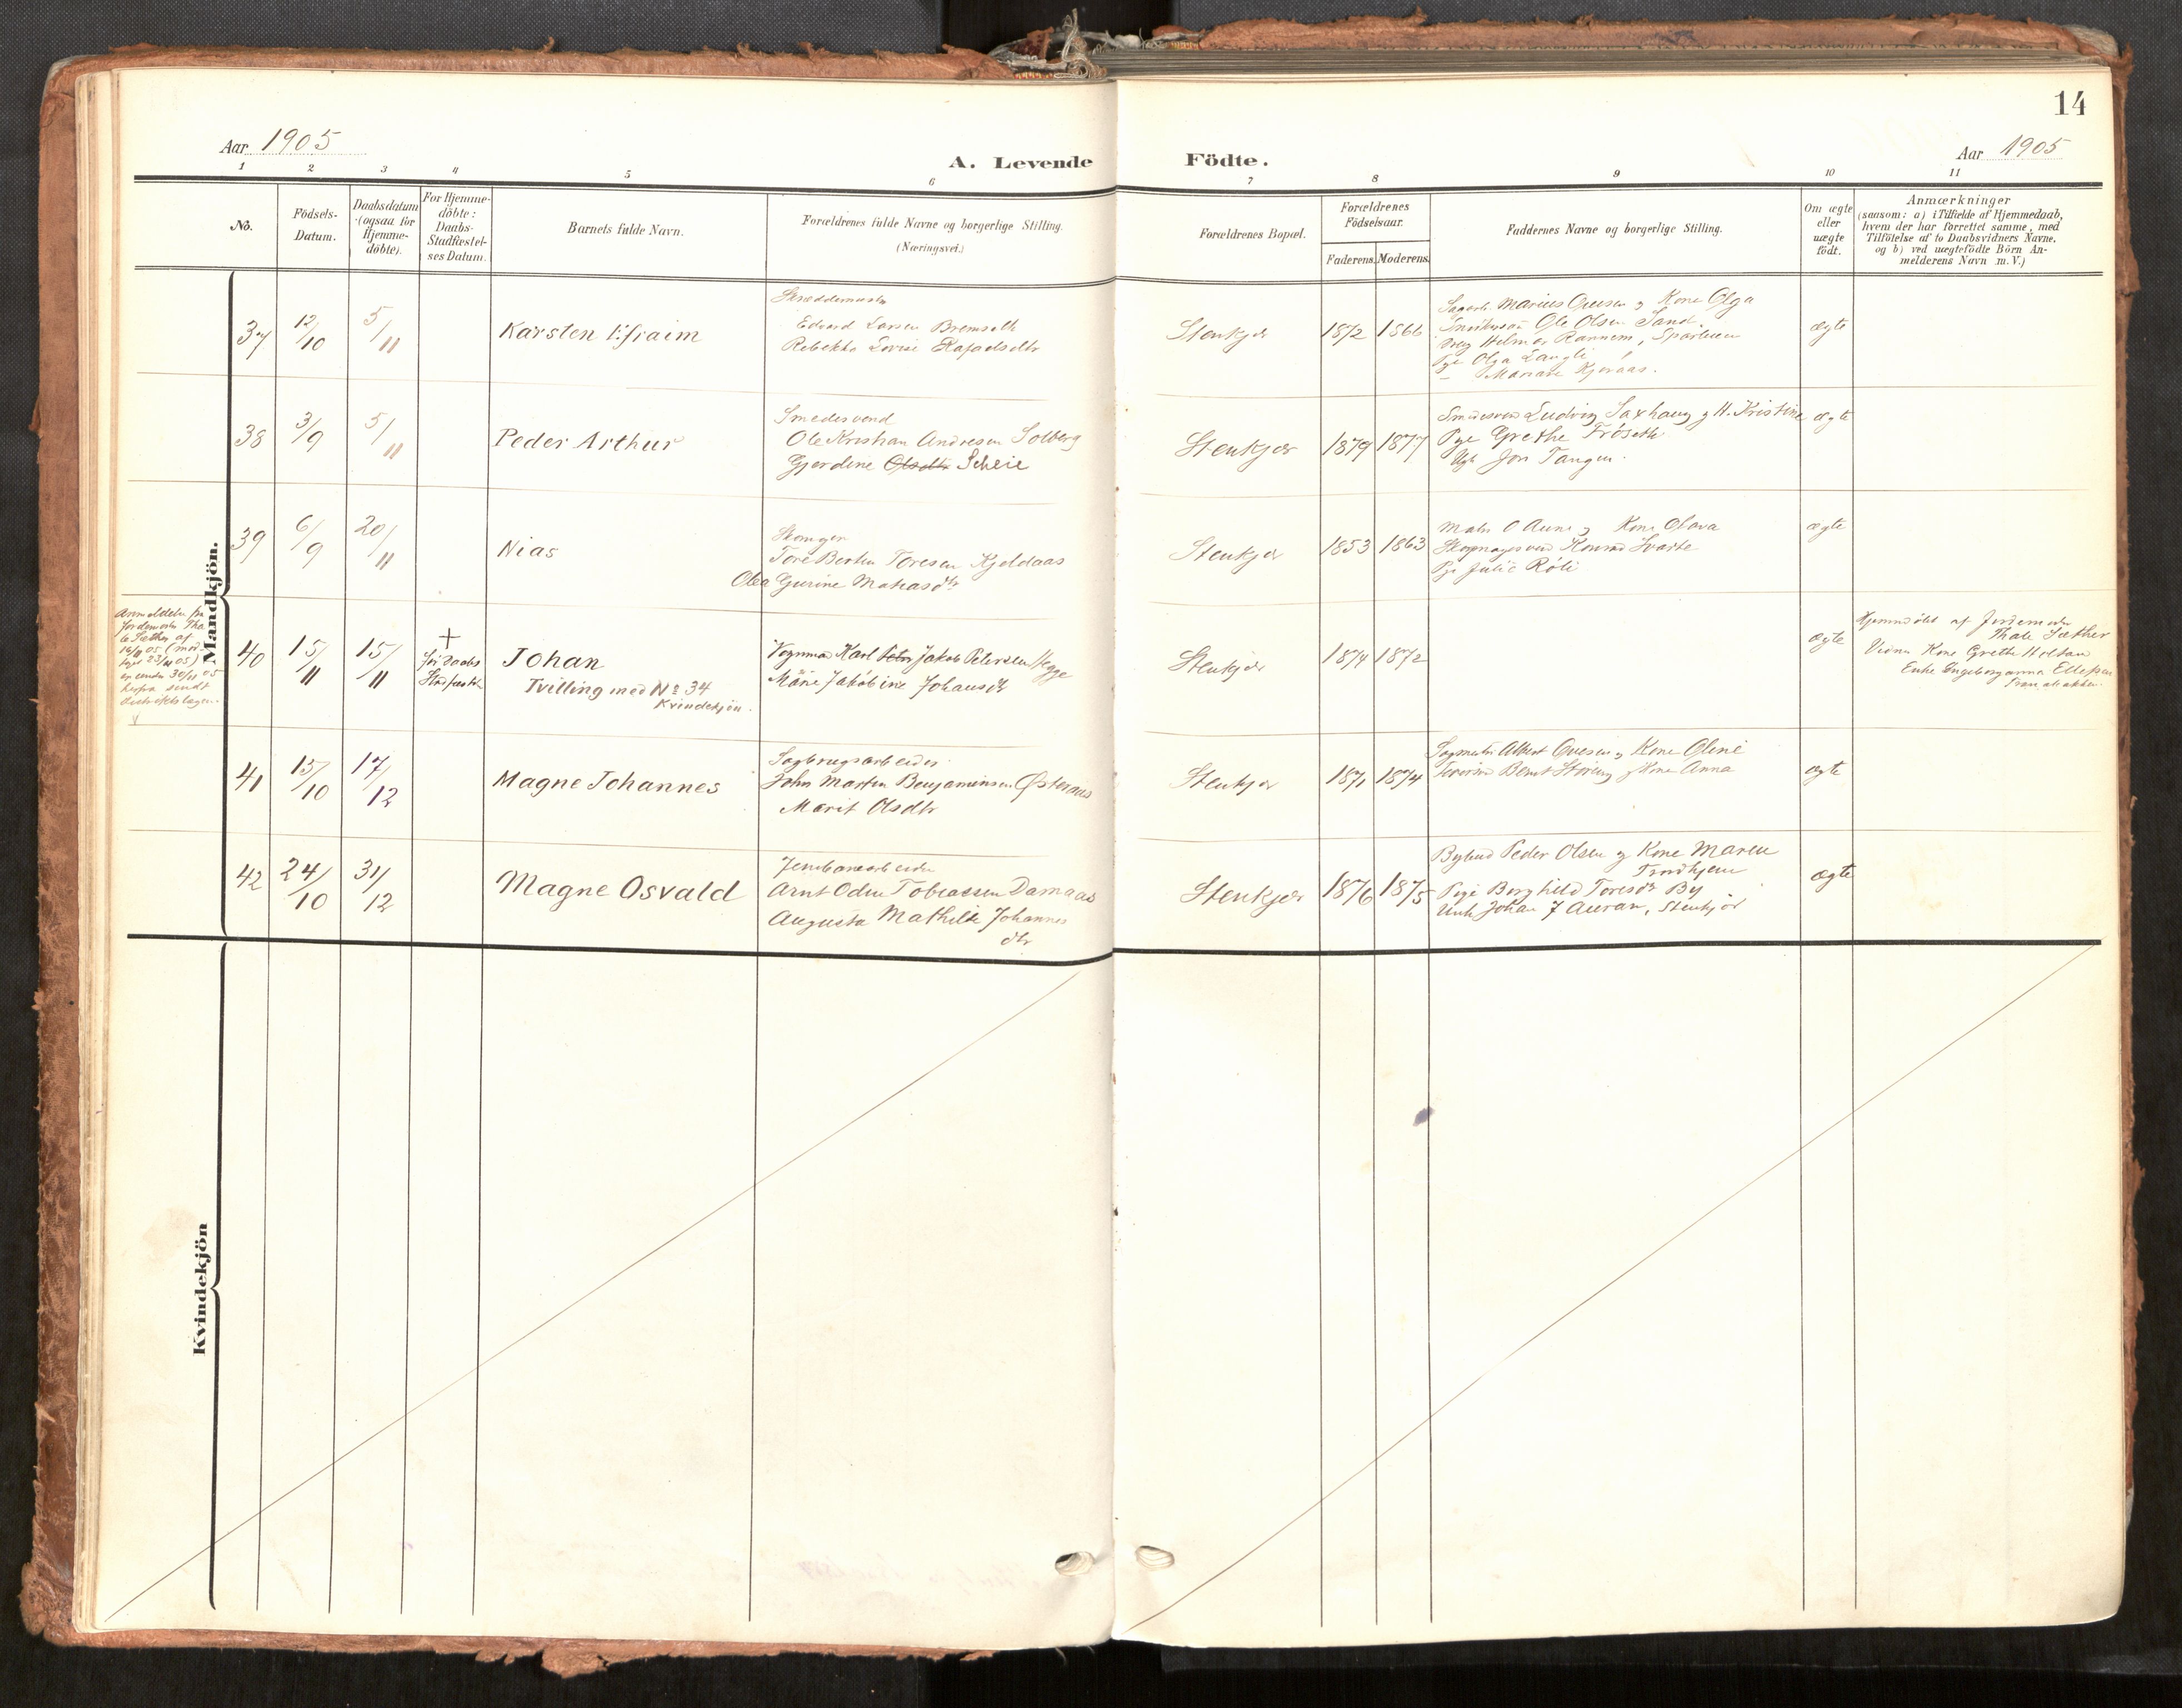 14
Aar 1905
A. Levende
Födte.
Aar 1905
1 2 3 4 5 6 7 8 9 10 11
No.
Födsels-
Datum.
Daabsdatum
(ogsaa for
Hjemme-
döbte).
For Hjemme-
döbte:
Daabs-
Stadfæstel-
ses Datum.
Barnets fulde Navn.
Forældrenes fulde Navne og borgerlige Stilling.
(Næringsvei.)
Forældrenes Bopæl.
Forældrenes
Födselsaar.
Faderens. Moderens.
Faddernes Navne og borgerlige Stilling.
Om ægte
eller
uægte
födt.
Anmærkninger
(saasom: a) i Tilfælde af Hjemmedaab,
hvem der har forrettet samme, med
Tilföielse af to Daabsvidners Navne,
og b) ved uægtefödte Börn An-
melderens Navn m. V.)
Mandkjön.
37
12/10
5/11
Karsten Efraim
Edvard Larsen Bremseth
Rebekka Lovise
Stenkjær
1872 1866
Marius Ovesen og Kone Olga
Ole Olsen Sand.
Helmer Rannem, Sparbuen
Pge Olga Langli
ægte
38
3/9
5/11
Peder Arthur
Smedesvend
Ole Kristian Andresen Solberg
Gjerdine Olsdtr Scheie
Stenkjær
1879 1877
Ludvig Saxhaug og H. Kristine
Pge Grethe Fröseth
Ugk Jon Tangen.
ægte
39
6/9
20/11
Nias
Tore Berten Toresen Kjeldaas
Olea Gurine Matiasdtr
Stenkjær
1853 1863
Maler O Aune og Kone Olava
Konrad Svarte
Pge Julie
ægte
Anmeldelse fra
Jordemoder Tha
le Sæther af
16/11 05 (mod-
taget 23/11 05)
30/11 05
herfra sendt
Distriktslægen.
40
15/11
15/11
+
för Daabs
Stadfæstelse
Johan
Tvilling med No 34
Kvindekjön.
Karl Peter Jakob Petersen Hegge
Jakobine Johansdtr
Stenkjær
1874 1872
ægte
Hjemmedöbt af Jordemoder
Thale Sæther
Vidner Kone Grethe Holtan
Enke Ingeborganna
41
15/10
17/12
Magne Johannes
Sagbrugsarbeider
John Martin Benjaminsen Østeraas
Marit Olsdtr
Stenkjær
1871 1874
Sagmester Albert Ovesen og Kone Oline
Bernt Störing og Kone Anna
ægte
42
24/10
31/12
Magne Osvald
Jernbanearbeider
Arnt Odin Tobiassen Damaas
Augusta Mathilde Johannes
dtr
Stenkjær
1876 1875
Bybud Peder Olsen og Kone Maren
Trondhjem
Pige Borghild Toresdtr By
Johan J Auran, Stenkjær
ægte
Kvindekjön